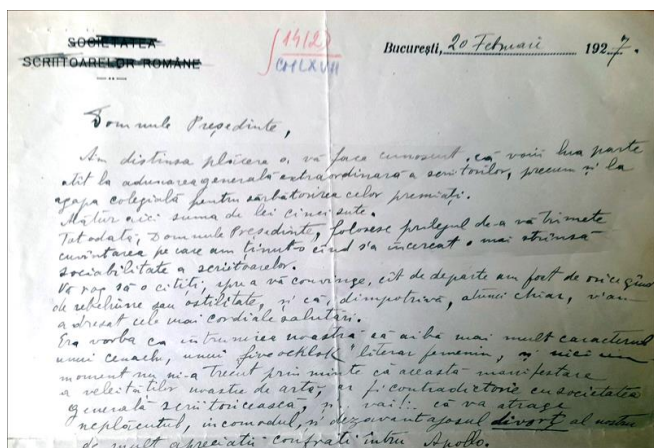 SOCIETATEA
SCRIITOARELOR ROMÂNE
14(2)
CMLXVII
București, 20 Februari 1927.
Domnule Președinte,
Am distinsa plăcere a vă face cunoscut, că voiu lua parte
atît la adunarea generală extraordinară a scriitorilor, precum și la
agapa colegială pentru sărbătorirea celor premiați.
Alătur aici suma de lei cinci sute.
Totodată, Domnule Președinte, folosesc prilejul de-a vă trimete
cuvîntarea pe care am ținut-o cînd s'a încercat o mai strînsă
sociabilitate a scriitoarelor.
Vă rog să o citiți, spre a vă convinge, cît de departe am fost de orice gînd
de rebeliune sau ostilitate, și că, dimpotrivă, atunci chiar, v'am
adresat cele mai cordiale salutări.
Era vorba ca întrunirea noastră să aibă mai mult caracterul
unui cenaclu, unui "five ocklok" literar femenin, și nici un
moment nu mi-a trecut prin minte că această manifestare
a veleităților noastre de artă, ar fi contradictorie cu societatea
generală scriitoricească, și vai!.. că va atrage
neplăcutul, incomodul, și dezavantajosul divorț al nostru
de mult apreciații confrați întru Apollo.